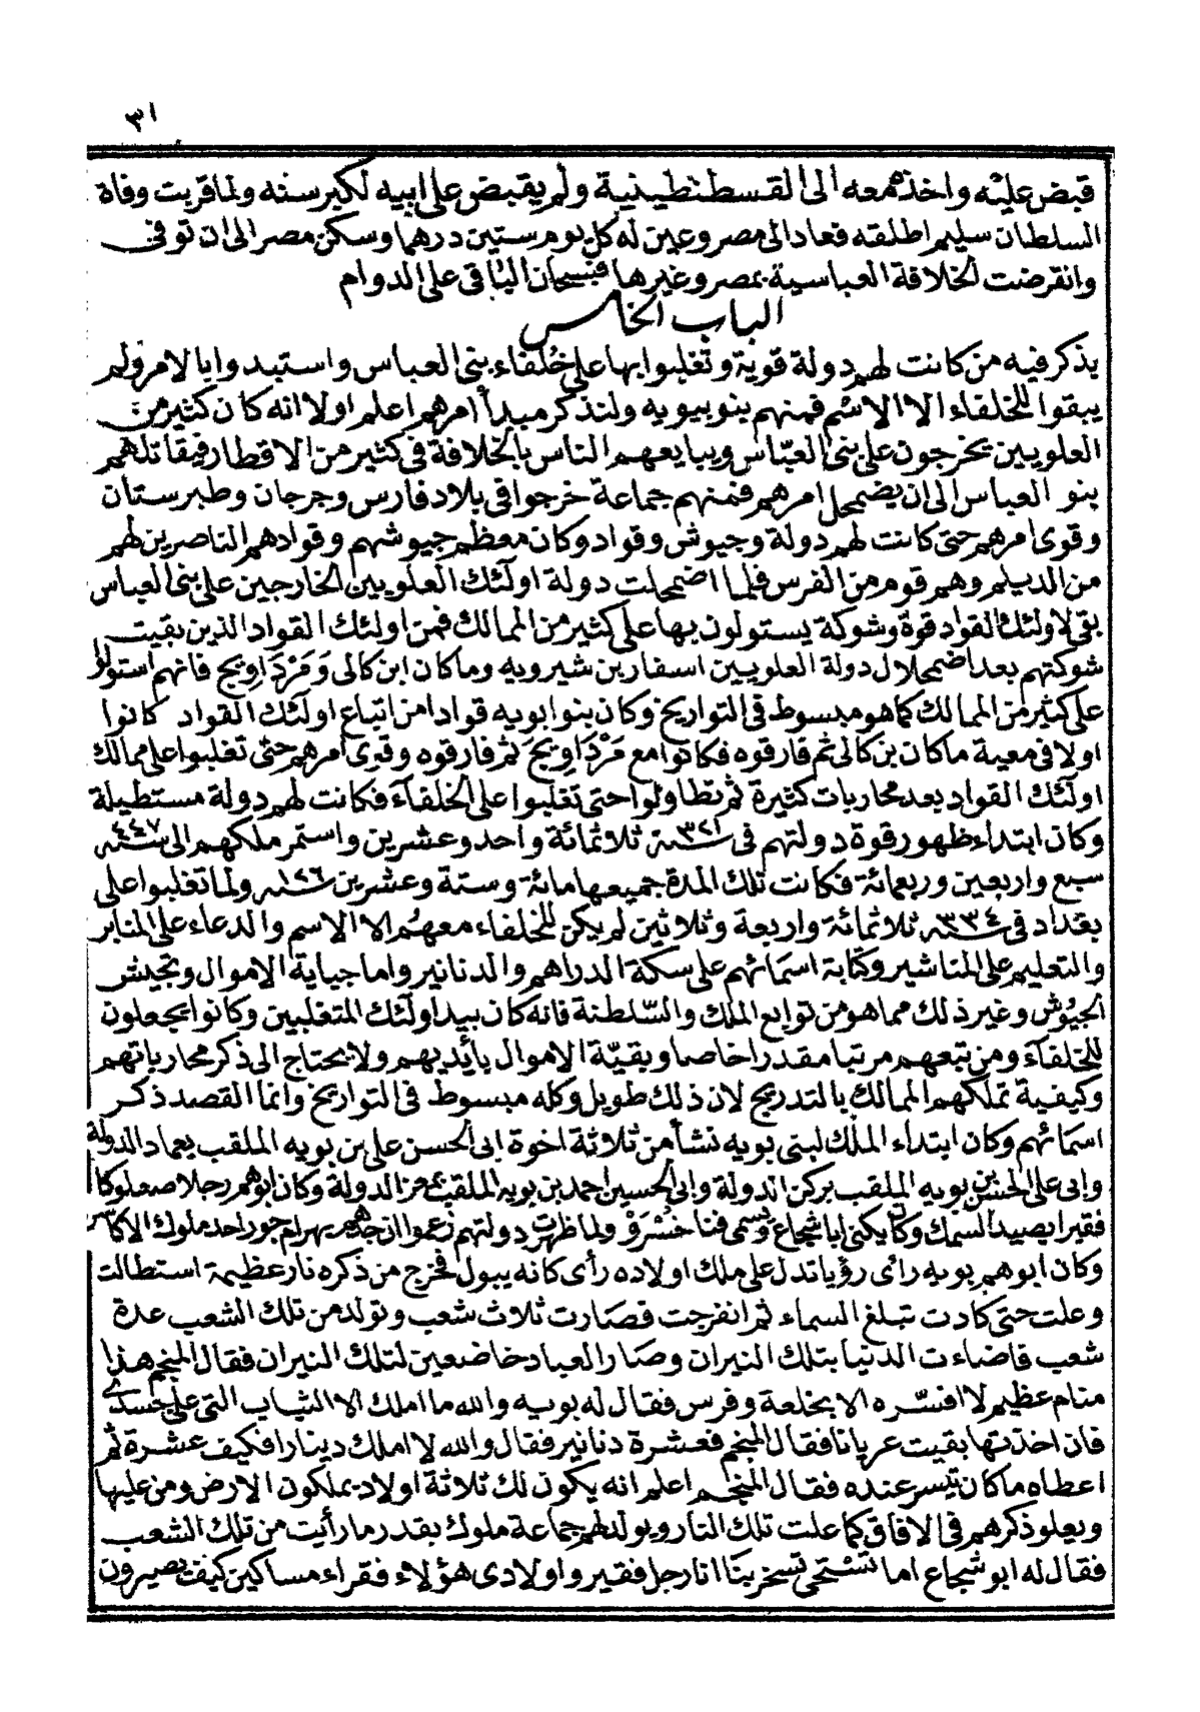 ٣١
قبض عليه واخذه معه الى القسطنطينية ولم يقبض على ابيه لكبر سنه ولما قربت وفاة
السلطان سليم اطلقه فعاد الى مصر وعين له كل يوم ستين درهما وسكن مصر الى ان توفى
وانقرضت الخلافة العباسية بمصر وغيرها فسبحان الباقى على الدوام
الباب الخامس
يذكر فيه من كانت لهم دولة قوية وتغلبوا بها على خلفاء بنى العباس واستبدوا بالامر ولم
يبقوا للخلفاء الا الاسم فمنهم بنو بويه ولنذكر مبدأ امرهم اعلم اولا انه كان كثير من
العلويين يخرجون على بنى العبّاس ويبايعهم الناس بالخلافة فى كثير من الاقطار فيقاتلهم
بنو العباس الى ان يضمحل امرهم فمنهم جماعة خرجوا فى بلاد فارس وجرجان وطبرستان
وقوى امرهم حتى كانت لهم دولة وجيوش وقواد وكان معظم جيوشهم وقوادهم الناصرين لهم
من الديلم وهم قوم من الفرس فلما اضمحلت دولة اولئك العلويين الخارجين على بنى العباس
بقى لاولئك القواد قوة وشوكة يستولون بها على كثير من الممالك فمن اولئك القواد الذين بقيت
شوكتهم بعد اضمحلال دولة العلويين اسفار بن شيرويه وماكان ابن كالى وَمَرْدَاوِيج فانهم استولوا
على كثير من الممالك كما هو مبسوط فى التواريخ وكان بنو ابويه قوادا من اتباع اولئك القواد كانوا
اولا فى معية ماكان بن كالى ثم فارقوه فكانوا مع مَرْدَاوِيجَ ثم فارقوه وقوى امرهم حتى تغلبوا على ممالك
اولئك القواد بعد محاربات كثيرة ثم تطاولوا حتى تغلبوا على الخلفآء فكانت لهم دولة مستطيلة
وكان ابتداء ظهور قوة دولتهم فى سنة ٣٢١ ثلاثمائة واحد وعشرين واستمر ملكهم الى سنة ٤٤٧
سبع واربعين وربعمائة فكانت تلك المدة جميعها مائة وستة وعشرين سنة ١٢٦ ولما تغلبوا على
بغداد فى سنة ٣٣٤ ثلاثمائة واربعة وثلاثين لم يكن للخلفاء معهُم الا الاسم والدعاء على المنابر
والتعليم على المناشير وكتابة اسمائهم على سكة الدراهم والدنانير واما جباية الاموال وتجيش
الجيُوش وغير ذلك مما هو من توابع الملك والسّلطنة فانه كان بيد اولئك المتغلبين وكانوا يجعلون
للخلفآء ومن تبعهم مرتبا مقدرا خاصا وبقيّة الاموال بأيديهم ولا يحتاج الى ذكر محارباتهم
وكيفية تملكهم الممالك بالتدريج لان ذلك طويل وكله مبسوط فى التواريخ وانما القصد ذكر
اسمائهم وكان ابتداء الملك لبنى بويه نشأ من ثلاثة اخوة ابى الحسن على بن بويه الملقب بعماد الدولة
وابى على الحسن بن بويه الملقب بركن الدولة وابى الحسين احمد بن بويه الملقب بمعز الدولة وكان ابوهم رجلا صعلوكا
فقيرا يصيد السمك وكان يكنى ابا شجاع ويسمى فنا خُسْرَوْ ولما ظهرت دولتهم زعموا ان جدهم بهرام جور احد ملوك الاكاسر
وكان ابوهم بويه رائى رؤيا تدل على ملك اولاده رأى كانه يبول فخرج من ذكره نار عظيمة استطالت
وعلت حتى كادت تبلغ السماء ثم انفرجت فصارت ثلاث شعب وتولد من تلك الشعب عدة
شعب فاضاءت الدنيا بتلك النيران وصار العباد خاضعين لتلك النيران فقال المنجم هذا
منام عظيم لا افسّره الا بخلعة وفرس فقال له بويه والله ما املك الا الثياب التى على جسدى
فان اخذتها بقيت عريانا فقال المنجم فعشرة دنانير فقال والله لا املك دينارا فكيف عشرة ثم
اعطاه ما كان تيسر عنده فقال المنجم اعلم انه يكون لك ثلاثة اولاد يملكون الارض ومن عليها
ويعلو ذكرهم فى الافاق كما علت تلك النار ويولد لهم جماعة ملوك بقدر ما رأيت من تلك الشعب
فقال له ابو شجاع اما تستحى تسخر بنا انا رجل فقير واولادى هؤلاء فقراء مساكين كيف يصيرون